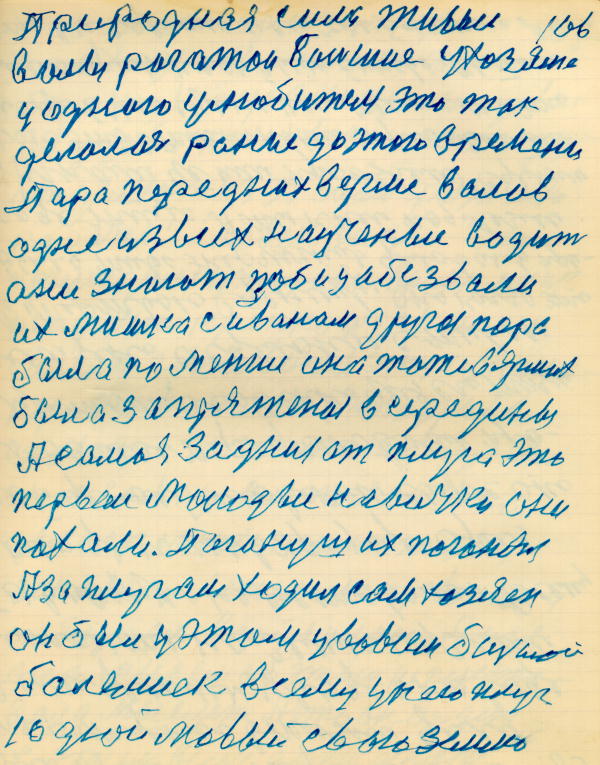 Природная сила живые 106
валы рогатои большие у хозяена
у одного у любителя это так
делолоя раньше до этого времени
Пара передних верме валов
одне из всех наученые водит
они знают
их мишка с иванам другоя пара
была поменше она тоже в ярмах
была запряжена в середины
А самая задния от плуга это
первые молодые навички они
пахали. Поганущ их поганял
А за плугам ходил сам хозяен
он был у этом у всьвем балшой
балельшек всему унего плуг
1одной новый своюземлю